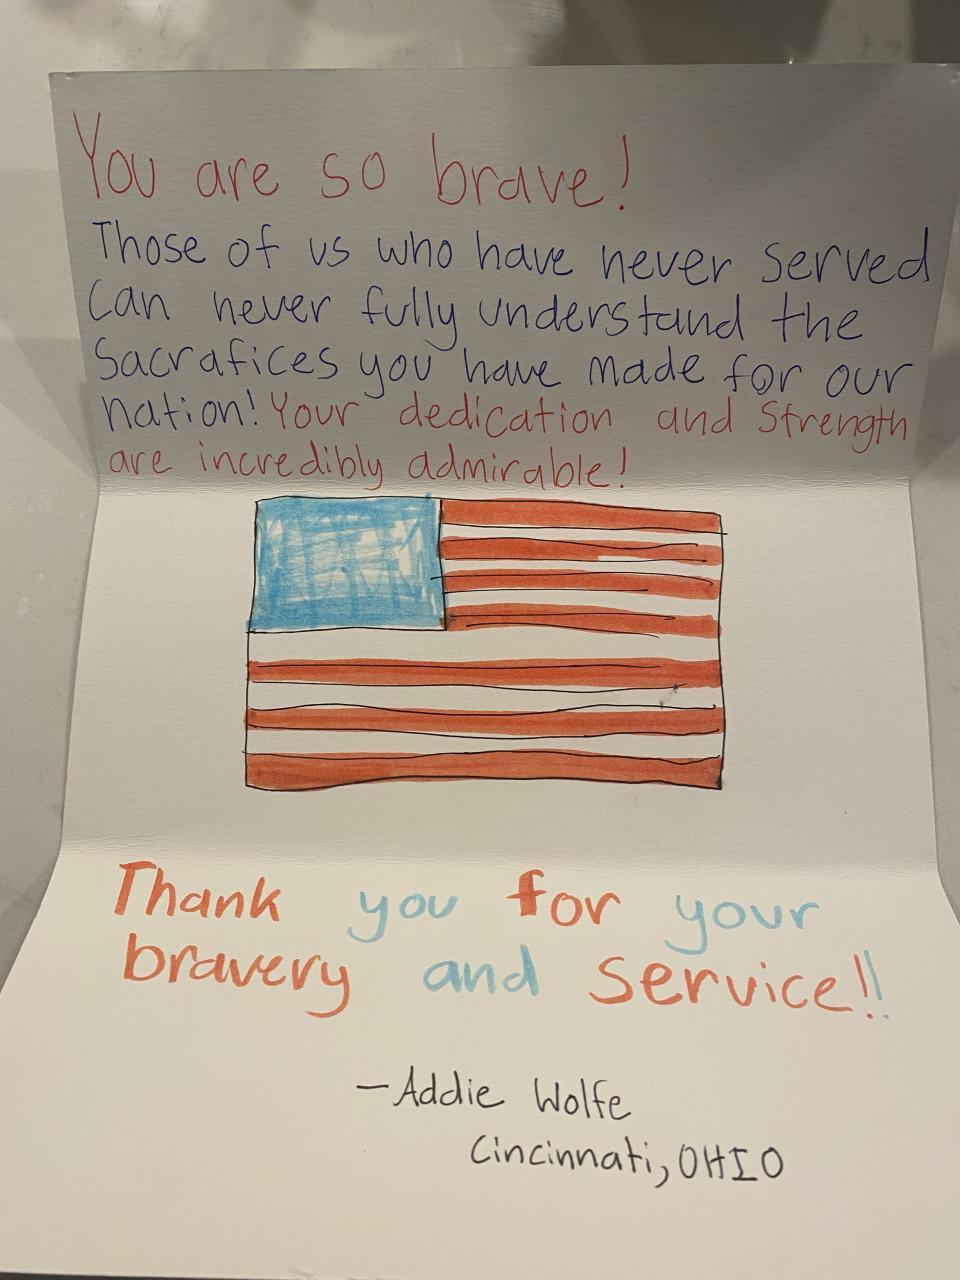 You are so brave!
Those of us who have never served
Can never fully understand the
Sacrafices you have made for our
nation! Your dedication and Strength
are incredibly admirable!
Thank you for your
bravery and service!!
-Addie Wolfe
Cincinnati, OHIO